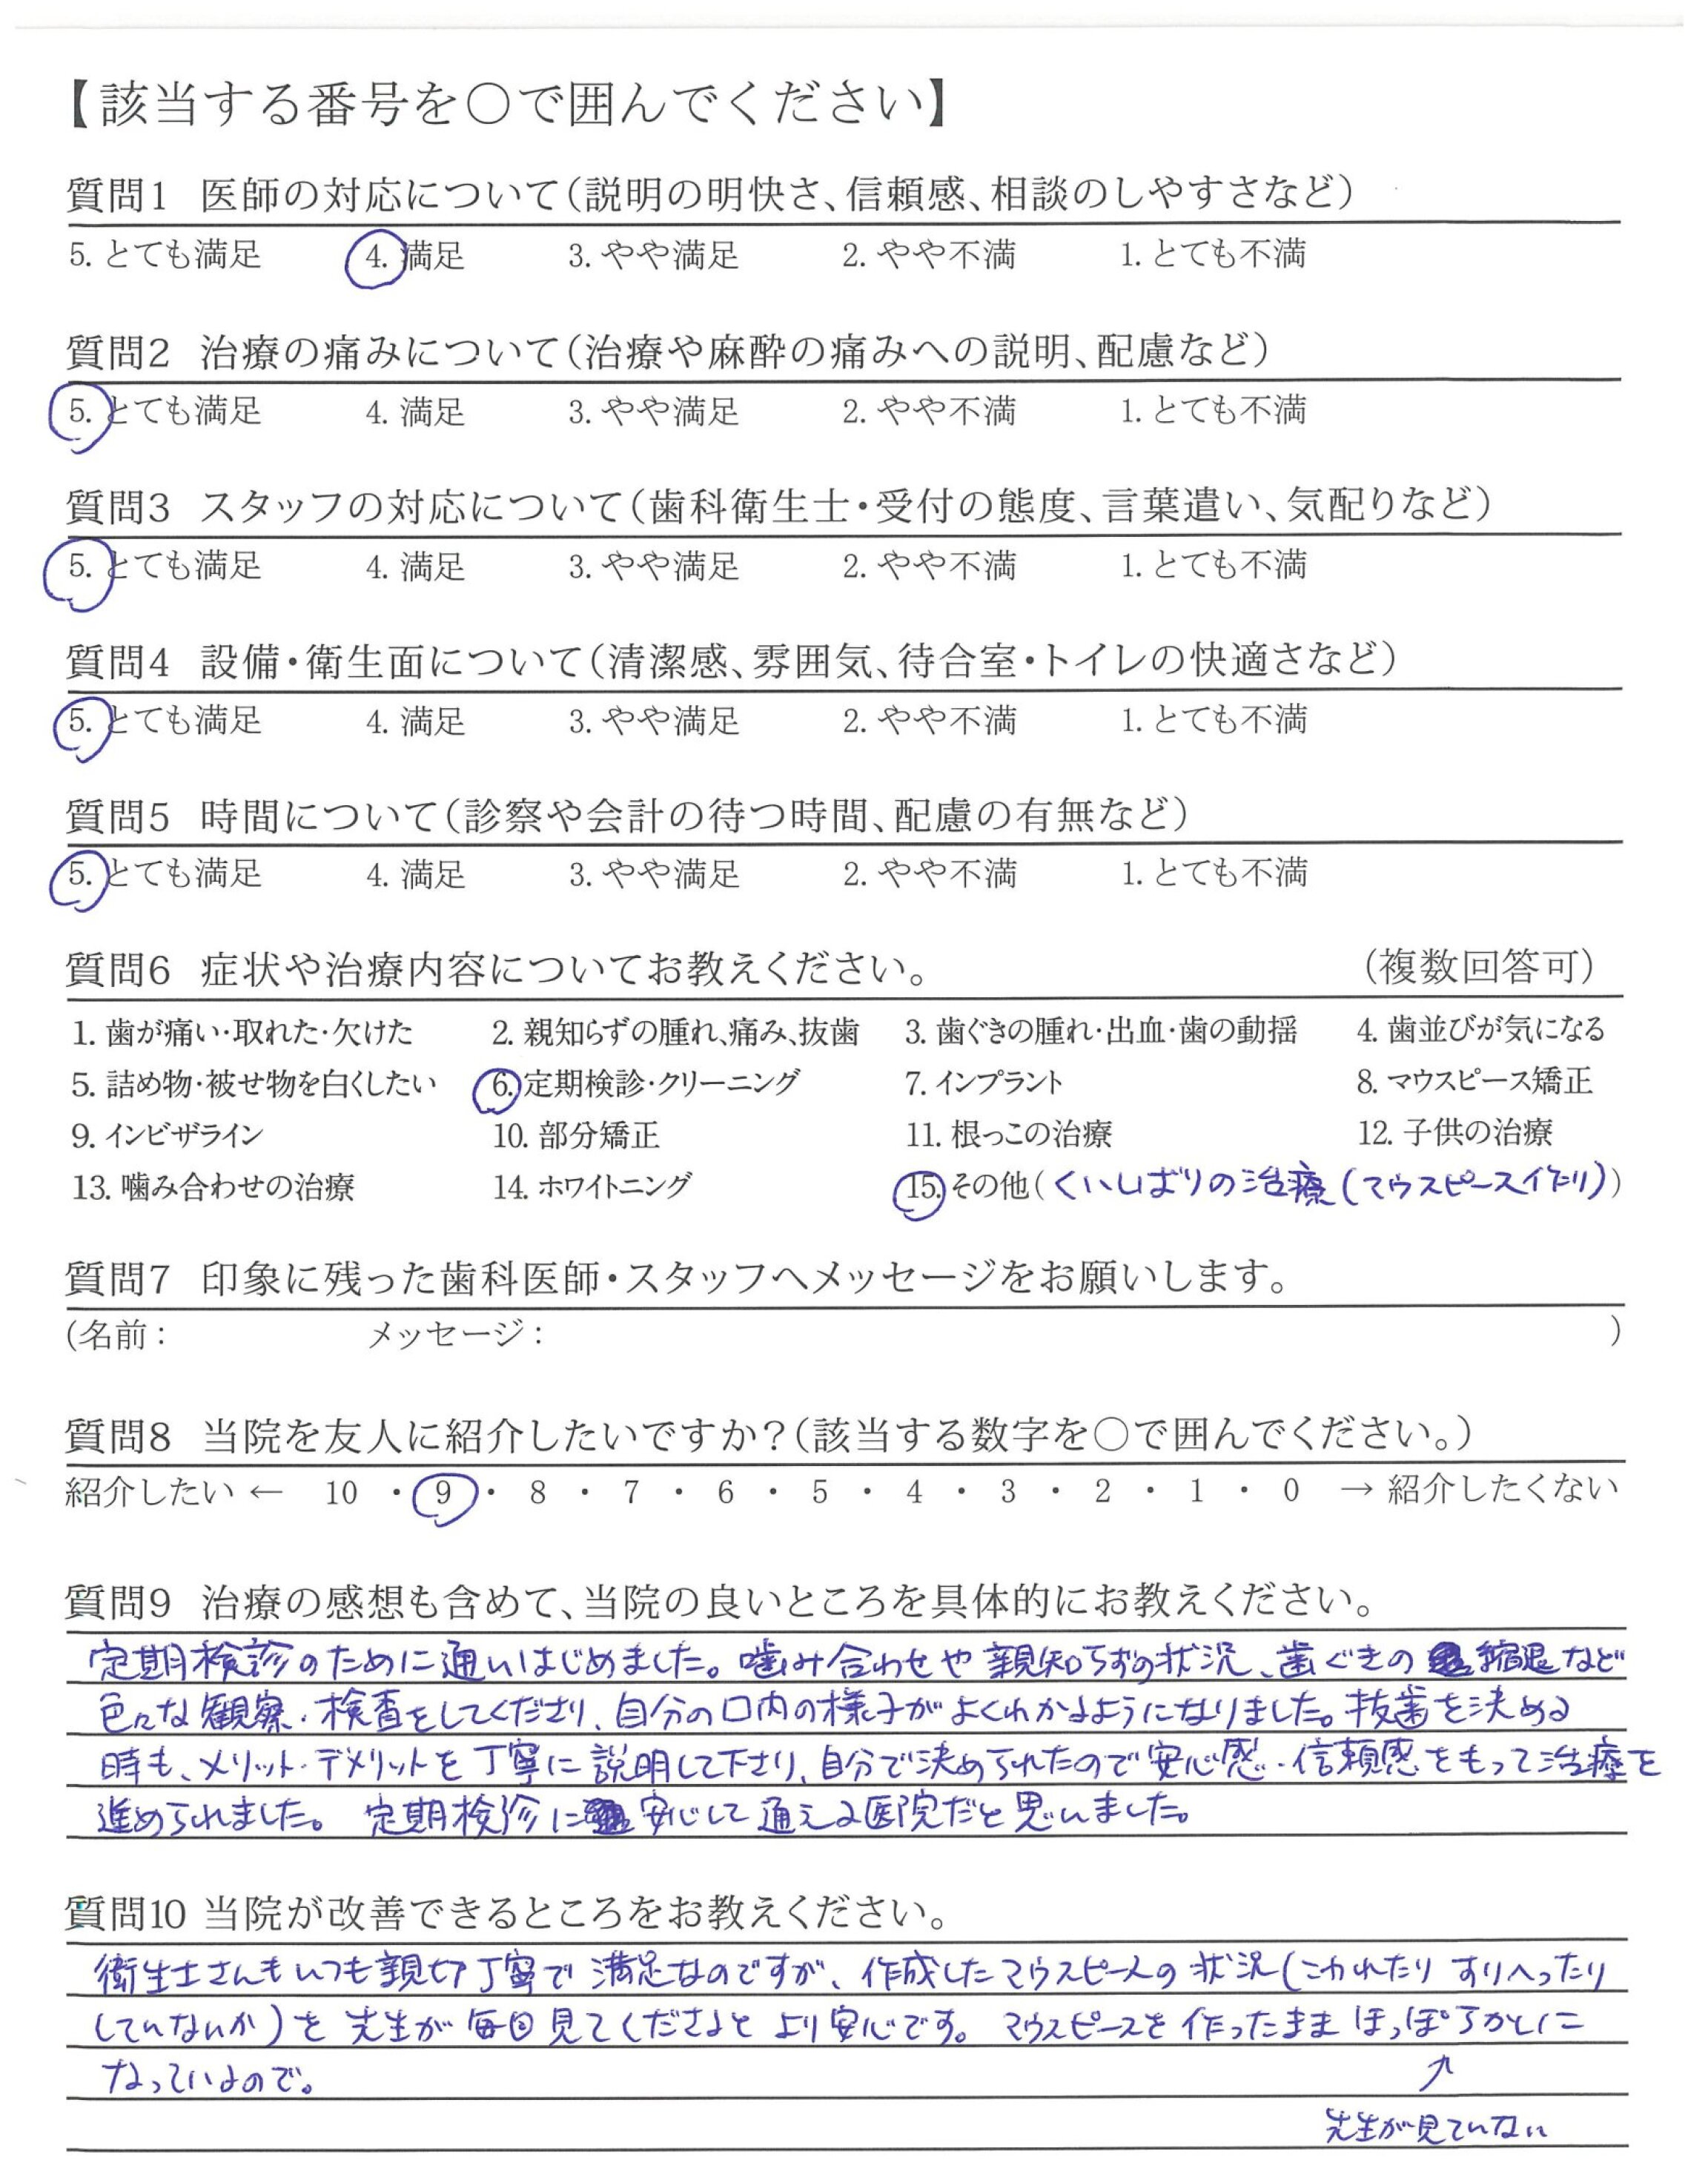 【該当する番号を○で囲んでください】
質問1 医師の対応について(説明の明快さ、信頼感、相談のしやすさなど)
5. とても満足 4. 満足 3. やや満足 2. やや不満 1. とても不満
質問2 治療の痛みについて(治療や麻酔の痛みへの説明、配慮など)
5. とても満足 4. 満足 3. やや満足 2. やや不満 1. とても不満
質問3 スタッフの対応について(歯科衛生士・受付の態度、言葉遣い、気配りなど)
5. とても満足 4. 満足 3. やや満足 2. やや不満 1. とても不満
質問4 設備・衛生面について(清潔感、雰囲気、待合室・トイレの快適さなど)
5. とても満足 4. 満足 3. やや満足 2. やや不満 1. とても不満
質問5 時間について(診察や会計の待つ時間、配慮の有無など)
5. とても満足 4. 満足 3. やや満足 2. やや不満 1. とても不満
質問6 症状や治療内容についてお教えください。 (複数回答可)
1. 歯が痛い・取れた・欠けた 2. 親知らずの腫れ、痛み、抜歯 3. 歯ぐきの腫れ・出血・歯の動揺 4. 歯並びが気になる
5. 詰め物・被せ物を白くしたい 6. 定期検診・クリーニング 7. インプラント 8. マウスピース矯正
9. インビザライン 10. 部分矯正 11. 根っこの治療 12. 子供の治療
13. 噛み合わせの治療 14. ホワイトニング 15. その他(くいしばりの治療(マウスピース作り))
質問7 印象に残った歯科医師・スタッフへメッセージをお願いします。
(名前: メッセージ: )
質問8 当院を友人に紹介したいですか?(該当する数字を○で囲んでください。)
紹介したい ← 10 ・ 9 ・ 8 ・ 7 ・ 6 ・ 5 ・ 4 ・ 3 ・ 2 ・ 1 ・ 0 → 紹介したくない
質問9 治療の感想も含めて、当院の良いところを具体的にお教えください。
定期検診のために通いはじめました。噛み合わせや親知らずの状況、歯ぐきの縮退など
色々な観察・検査をしてくださり、自分の口内の様子がよくわかるようになりました。抜歯を決める
時も、メリット・デメリットを丁寧に説明して下さり、自分で決められたので安心感・信頼感をもって治療を
進められました。 定期検診に安心して通える医院だと思いました。
質問10 当院が改善できるところをお教えください。
衛生士さんもいつも親切丁寧で満足なのですが、作成したマウスピースの状況(こわれたりすりへったり
していないか)を先生が毎回見てくださるとより安心です。 マウスピースを作ったままほっぽらかしに
なっているので。 ↑
先生が見ていない